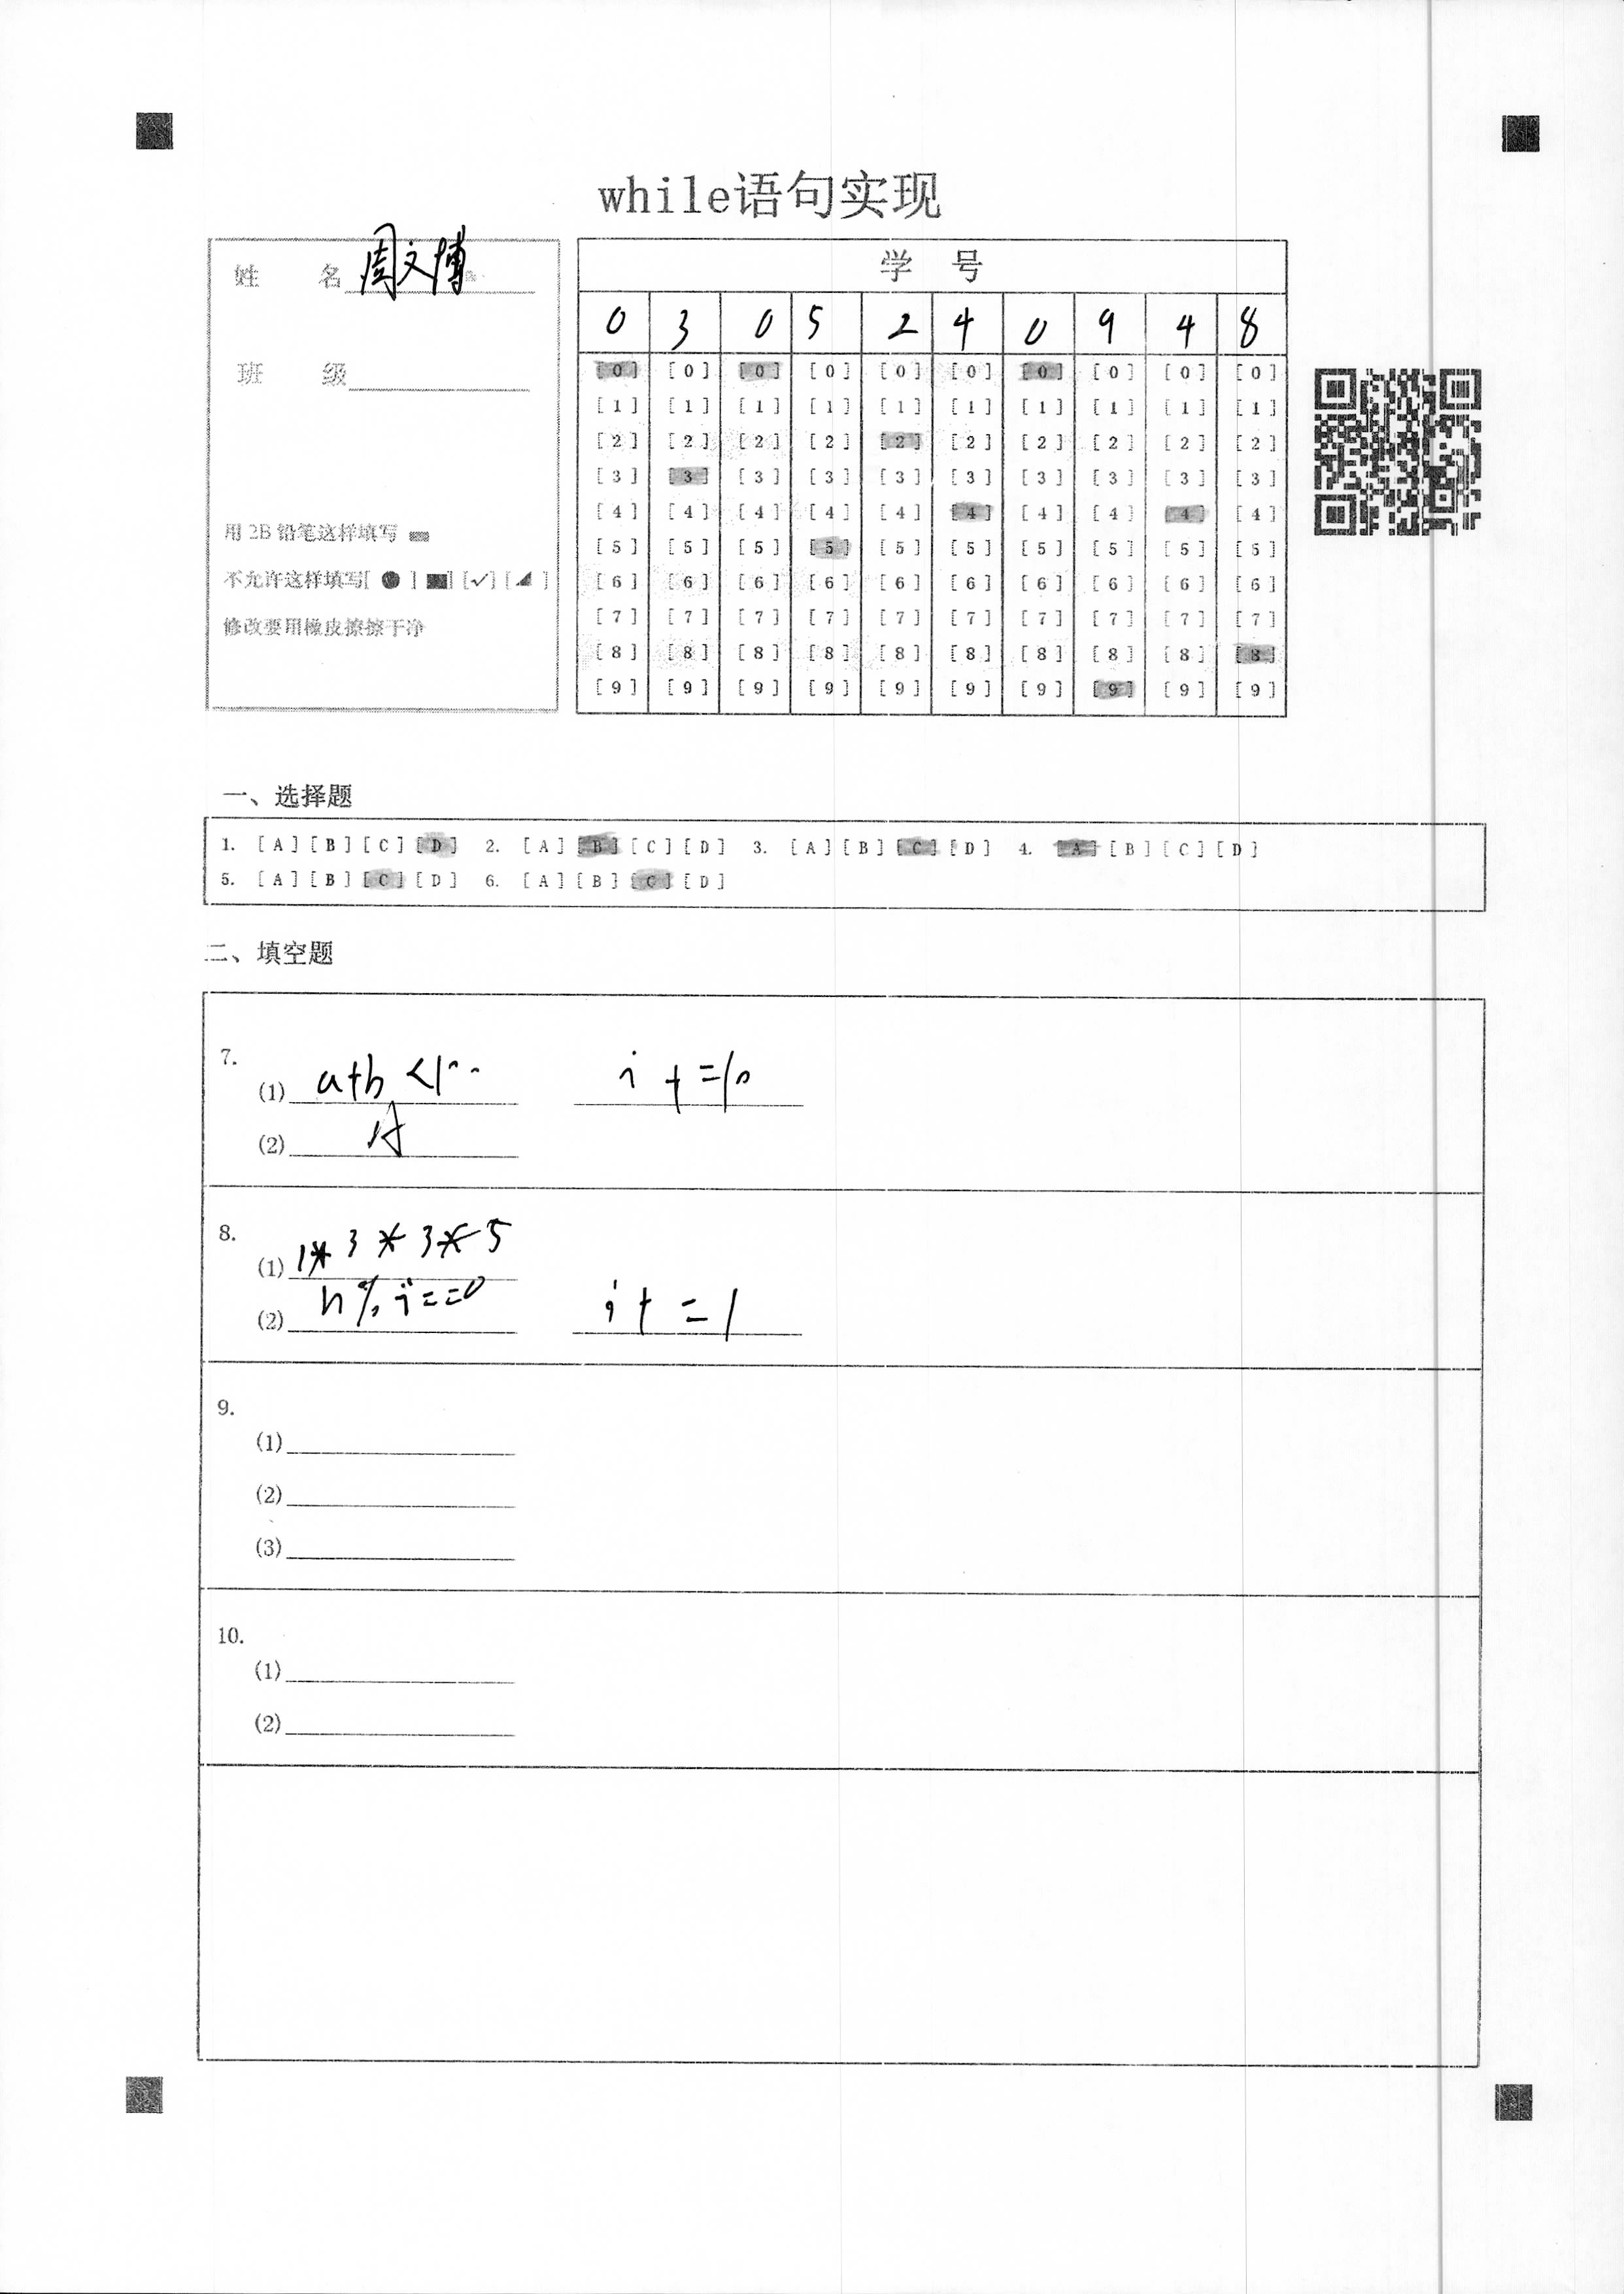 while语句实现
姓 名 周文博
班 级
用 2B 铅笔这样填写
不允许这样填写[ ● ] [■] [✓] [◢]
修改要用橡皮擦擦干净
学 号
0 3 0 5 2 4 0 9 4 8
[0] [0] [0] [0] [0] [0] [0] [0] [0] [0]
[1] [1] [1] [1] [1] [1] [1] [1] [1] [1]
[2] [2] [2] [2] [2] [2] [2] [2] [2] [2]
[3] [3] [3] [3] [3] [3] [3] [3] [3] [3]
[4] [4] [4] [4] [4] [4] [4] [4] [4] [4]
[5] [5] [5] [5] [5] [5] [5] [5] [5] [5]
[6] [6] [6] [6] [6] [6] [6] [6] [6] [6]
[7] [7] [7] [7] [7] [7] [7] [7] [7] [7]
[8] [8] [8] [8] [8] [8] [8] [8] [8] [8]
[9] [9] [9] [9] [9] [9] [9] [9] [9] [9]
一、选择题
1. [A] [B] [C] [D] 2. [A] [B] [C] [D] 3. [A] [B] [C] [D] 4. [A] [B] [C] [D]
5. [A] [B] [C] [D] 6. [A] [B] [C] [D]
二、填空题
7.
(1) a+b <1 i +=
(2) A
8.
(1) 1* 3 * 3 * 5
(2) n % i==0 i + = 1
9.
(1)
(2)
(3)
10.
(1)
(2)